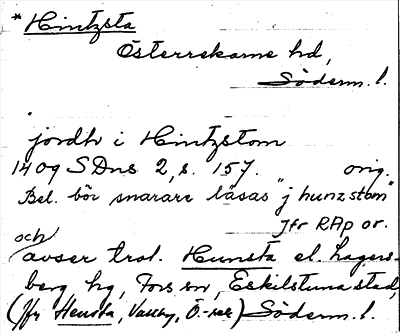 * Hintzsta
Österrekarne hd,
Söderm. l.
jordh i Hintzstom
1409 SDns 2, s. 157. orig.
Bel. bör snarare läsas "j hunzstom"
Jfr RAp or.
och
avser trol. Hunsta el. Lagers-
berg hg, Fors sn, Eskilstuna stad,
(jfr Hensta, Vallby, Ö.-rek) Söderm. l.